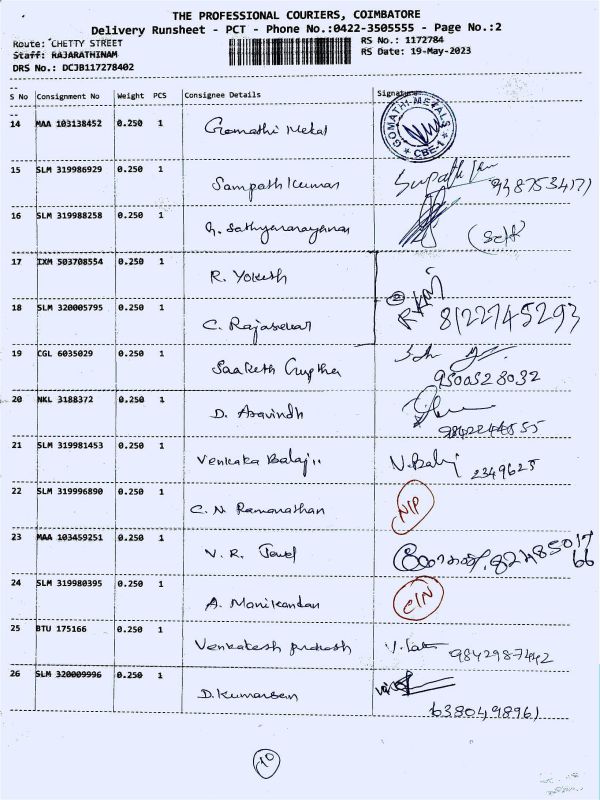 THE PROFESSIONAL COURIERS, COIMBATORE
Delivery Runsheet - PCT - Phone No.:0422-3505555 - Page No.:2
Route: CHETTY STREET RS No.: 1172784
Staff: RAJARATHINAM RS Date: 19-May-2023
DRS No.: DCJB117278402
S No Consignment No Weight PCS Consignee Details Signature
14 MAA 103138452 0.250 1 Gomathi Metal GOMATHI-METALS CBE-1
15 SLM 319986929 0.250 1 Sampath Kumar 9487534171
16 SLM 319988258 0.250 1 G. Sathyanarayanan (Self)
17 IXM 503708554 0.250 1 R. Yokesh
18 SLM 320005795 0.250 1 C. Rajasekar 8122745293
19 CGL 6035029 0.250 1 9500528032
20 NKL 3188372 0.250 1 D. Aravindh
21 SLM 319981453 0.250 1 Venkata Balaji V. Balaji 2349625
22 SLM 319996890 0.250 1 C. N. Ramanathan N/P
23 MAA 103459251 0.250 1 V. R.
24 SLM 319980395 0.250 1 A. Manikandan
25 BTU 175166 0.250 1 Venkatesh prakash 9842987442
26 SLM 320009996 0.250 1 D. Kumaresan 6380498961
10